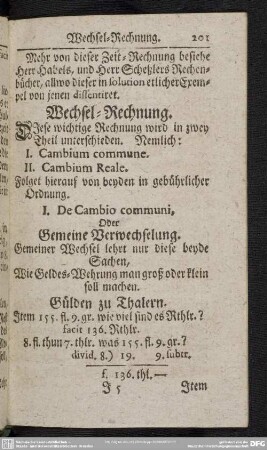 Wechsel-Rechnung. 201
Mehr von dieser Zeit-Rechnung besiehe
Herr Habels, und Herr Scheßlers Rechen-
bücher, allwo dieser in solution etlicher Exem-
pel von jenen dissentiret.
Wechsel-Rechnung.
DJese wichtige Rechnung wird in zwey
Theil unterschieden. Nemlich:
I. Cambium commune.
II. Cambium Reale.
Folget hierauf von beyden in gebührlicher
Ordnung.
I. De Cambio communi,
Oder
Gemeine Verwechselung.
Gemeiner Wechsel lehrt nur diese beyde
Sachen,
Wie Geldes-Wehrung man groß oder klein
soll machen.
Gülden zu Thalern.
Item 155. fl. 9. gr. wie viel sind es Rthlr.?
facit 136. Rthlr.
8. fl. thun 7. thlr. was 155. fl. 9. gr.?
divid. 8.) 19. 9. subtr.
f. 136. thl.—
J 5 Item